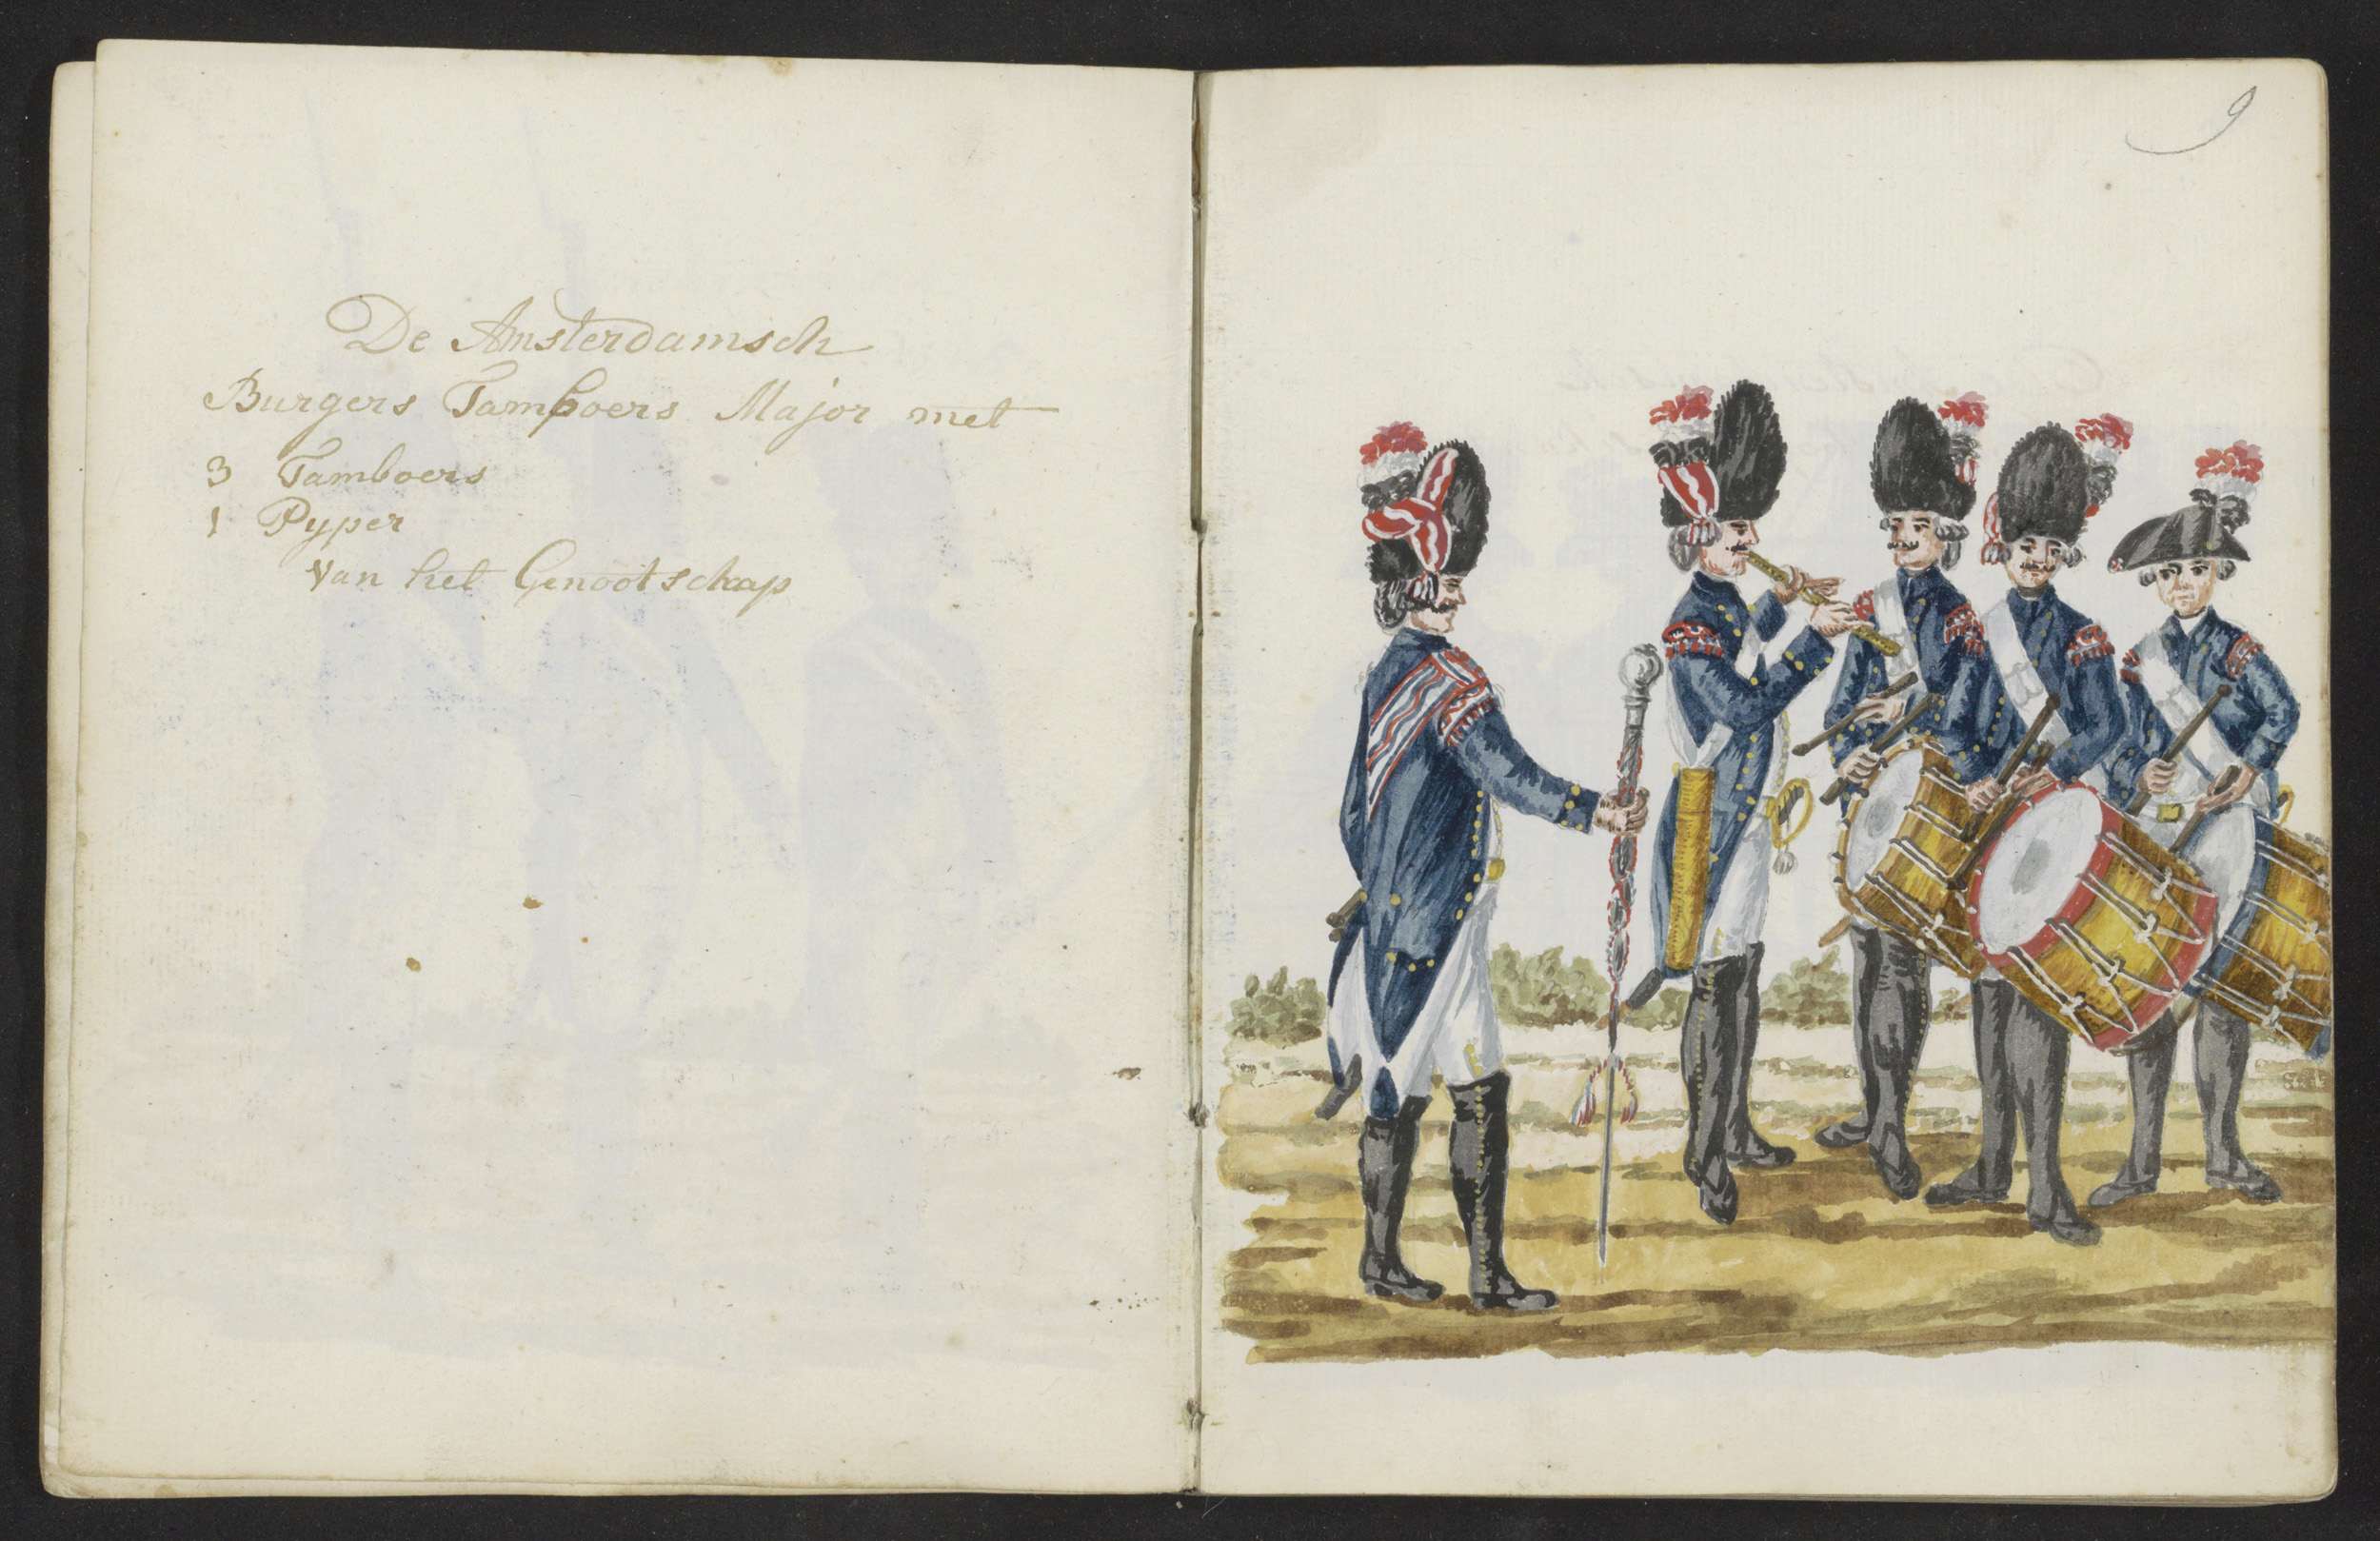 De Amsterdamsch
Burgers Tamboers Major met
3 Tamboers
1 Pyper
van het Genootschap
9